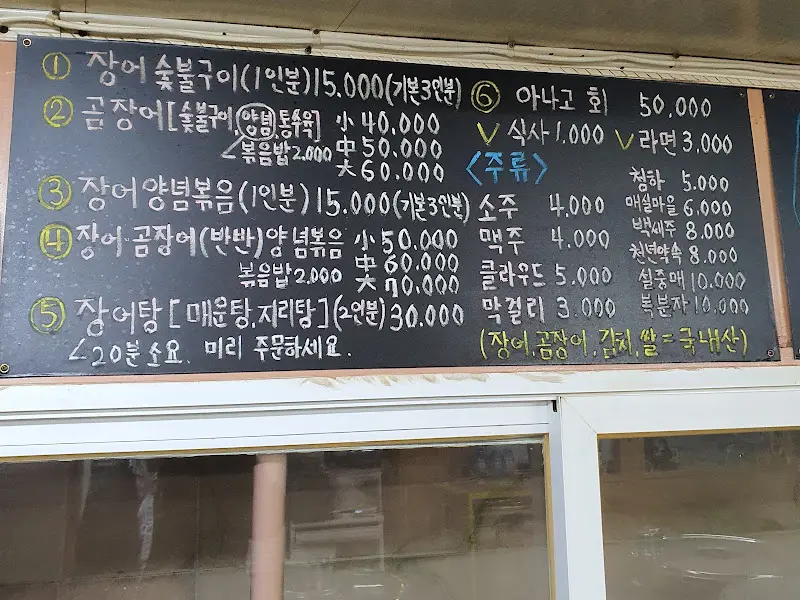 ① 장어 숯불구이(1인분)15.000(기본3인분)
② 곰장어[숯불구이,양념,통수육] 小 40.000
∠볶음밥2.000 中 50.000
大 60.000
③ 장어양념볶음(1인분)15.000(기본3인분)
④ 장어 곰장어(반반)양념볶음 小 50.000
볶음밥2.000 中 60.000
大 70.000
⑤ 장어탕[매운탕,지리탕](2인분)30.000
∠20분소요. 미리 주문하세요.
⑥ 아나고 회 50,000
V 식사 1,000 V 라면 3,000
<주류>
소주 4.000
맥주 4.000
클라우드 5.000
막걸리 3.000
청하 5.000
매실마을 6.000
백세주 8.000
천년약속 8.000
설중매 10.000
복분자 10.000
(장어,곰장어,김치,쌀=국내산)